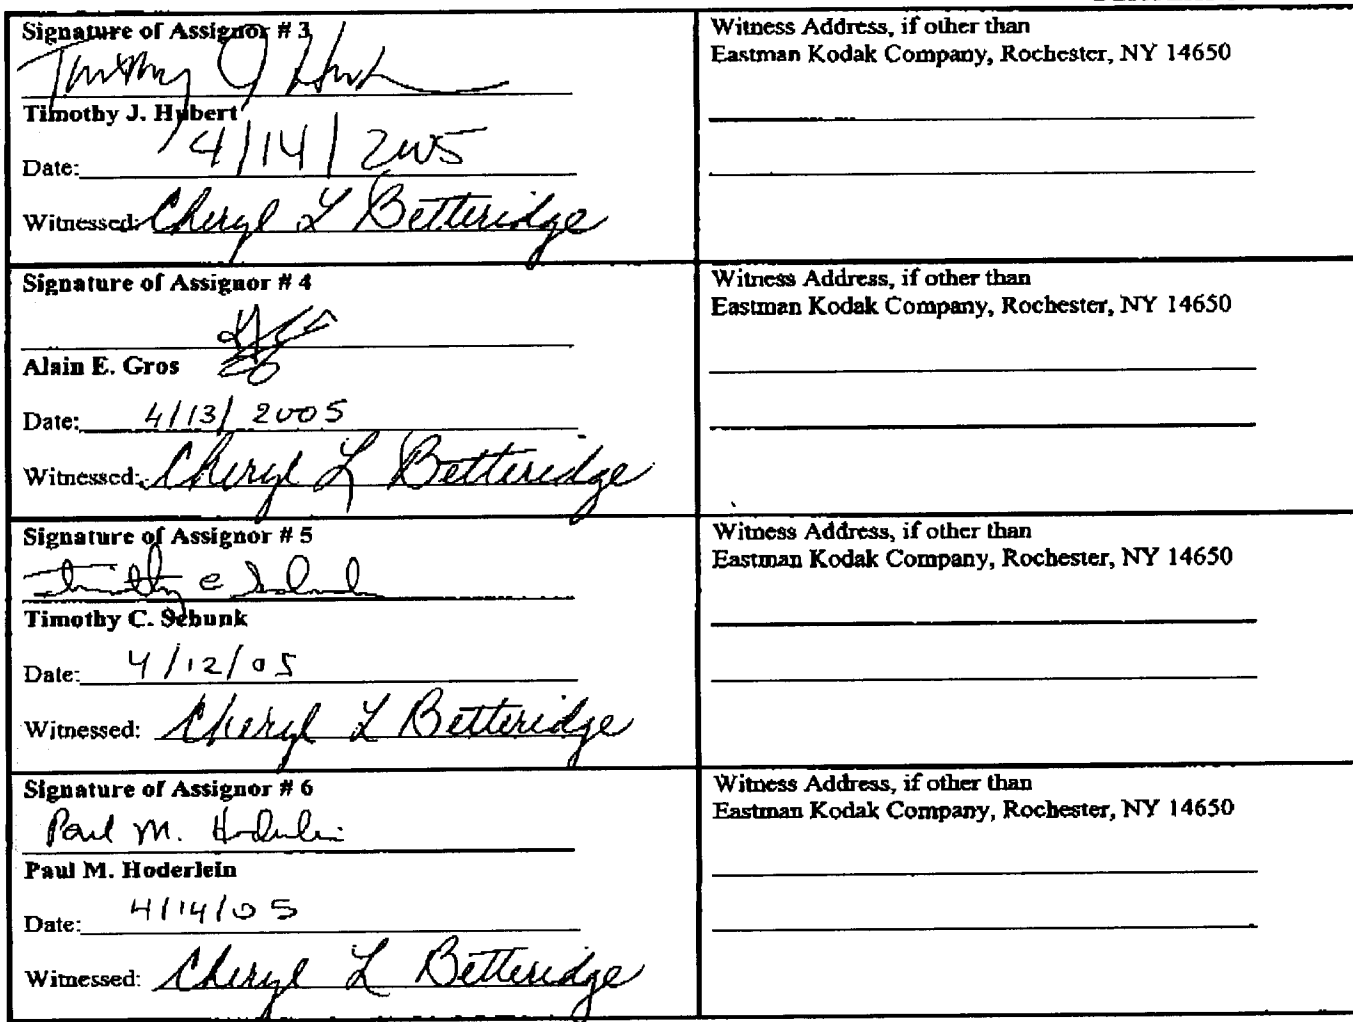 Signature of Assignor # 3
Timothy J. Hubert
Date: 4/14/2005
Witnessed: Cheryl L Betteridge
Witness Address, if other than
Eastman Kodak Company, Rochester, NY 14650
Signature of Assignor # 4
Alain E. Gros
Date: 4/13/2005
Witnessed: Cheryl L Betteridge
Witness Address, if other than
Eastman Kodak Company, Rochester, NY 14650
Signature of Assignor # 5
Timothy C. Schunk
Date: 4/12/05
Witnessed: Cheryl L Betteridge
Witness Address, if other than
Eastman Kodak Company, Rochester, NY 14650
Signature of Assignor # 6
Paul M. Hoderlein
Paul M. Hoderlein
Date: 4/14/05
Witnessed: Cheryl L Betteridge
Witness Address, if other than
Eastman Kodak Company, Rochester, NY 14650